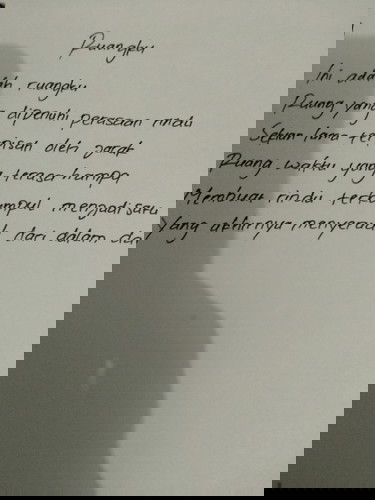 Ruangku
Ini adalah ruangku
Ruang yang dipenuhi perasaan rindu
Sekian lama terpisah oleh jarak
Ruang waktu yang terasa hampa
Membuat rindu terkumpul menjadi satu
Yang akhirnya menyeruak dari dalam diri